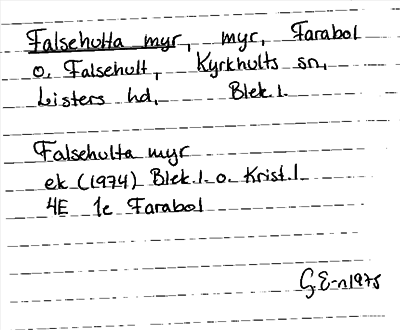 Falsehulta myr, myr, Farabol
o. Falsehult, Kyrkhults sn,
Listers hd, Blek.l.
Falsehulta myr
ek (1974) Blek.l. o. Krist.l
4E 1e Farabol
G.E-n 1975